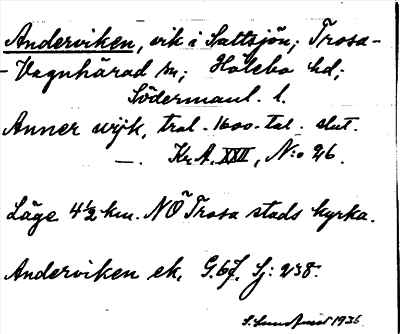 Anderviken, vik i Saltsjön; Trosa-
-Vagnhärad sn; Hölebo hd;
Södermanl. l.
Anner wijk, trol. 1600-tal. slut.
—. Kr.A. XXII, N:o 26.
Läge 4½ km. NÖ Trosa stads kyrka.
Anderviken ek. G.bf. Sj: 238.
S. Sundquist 1935